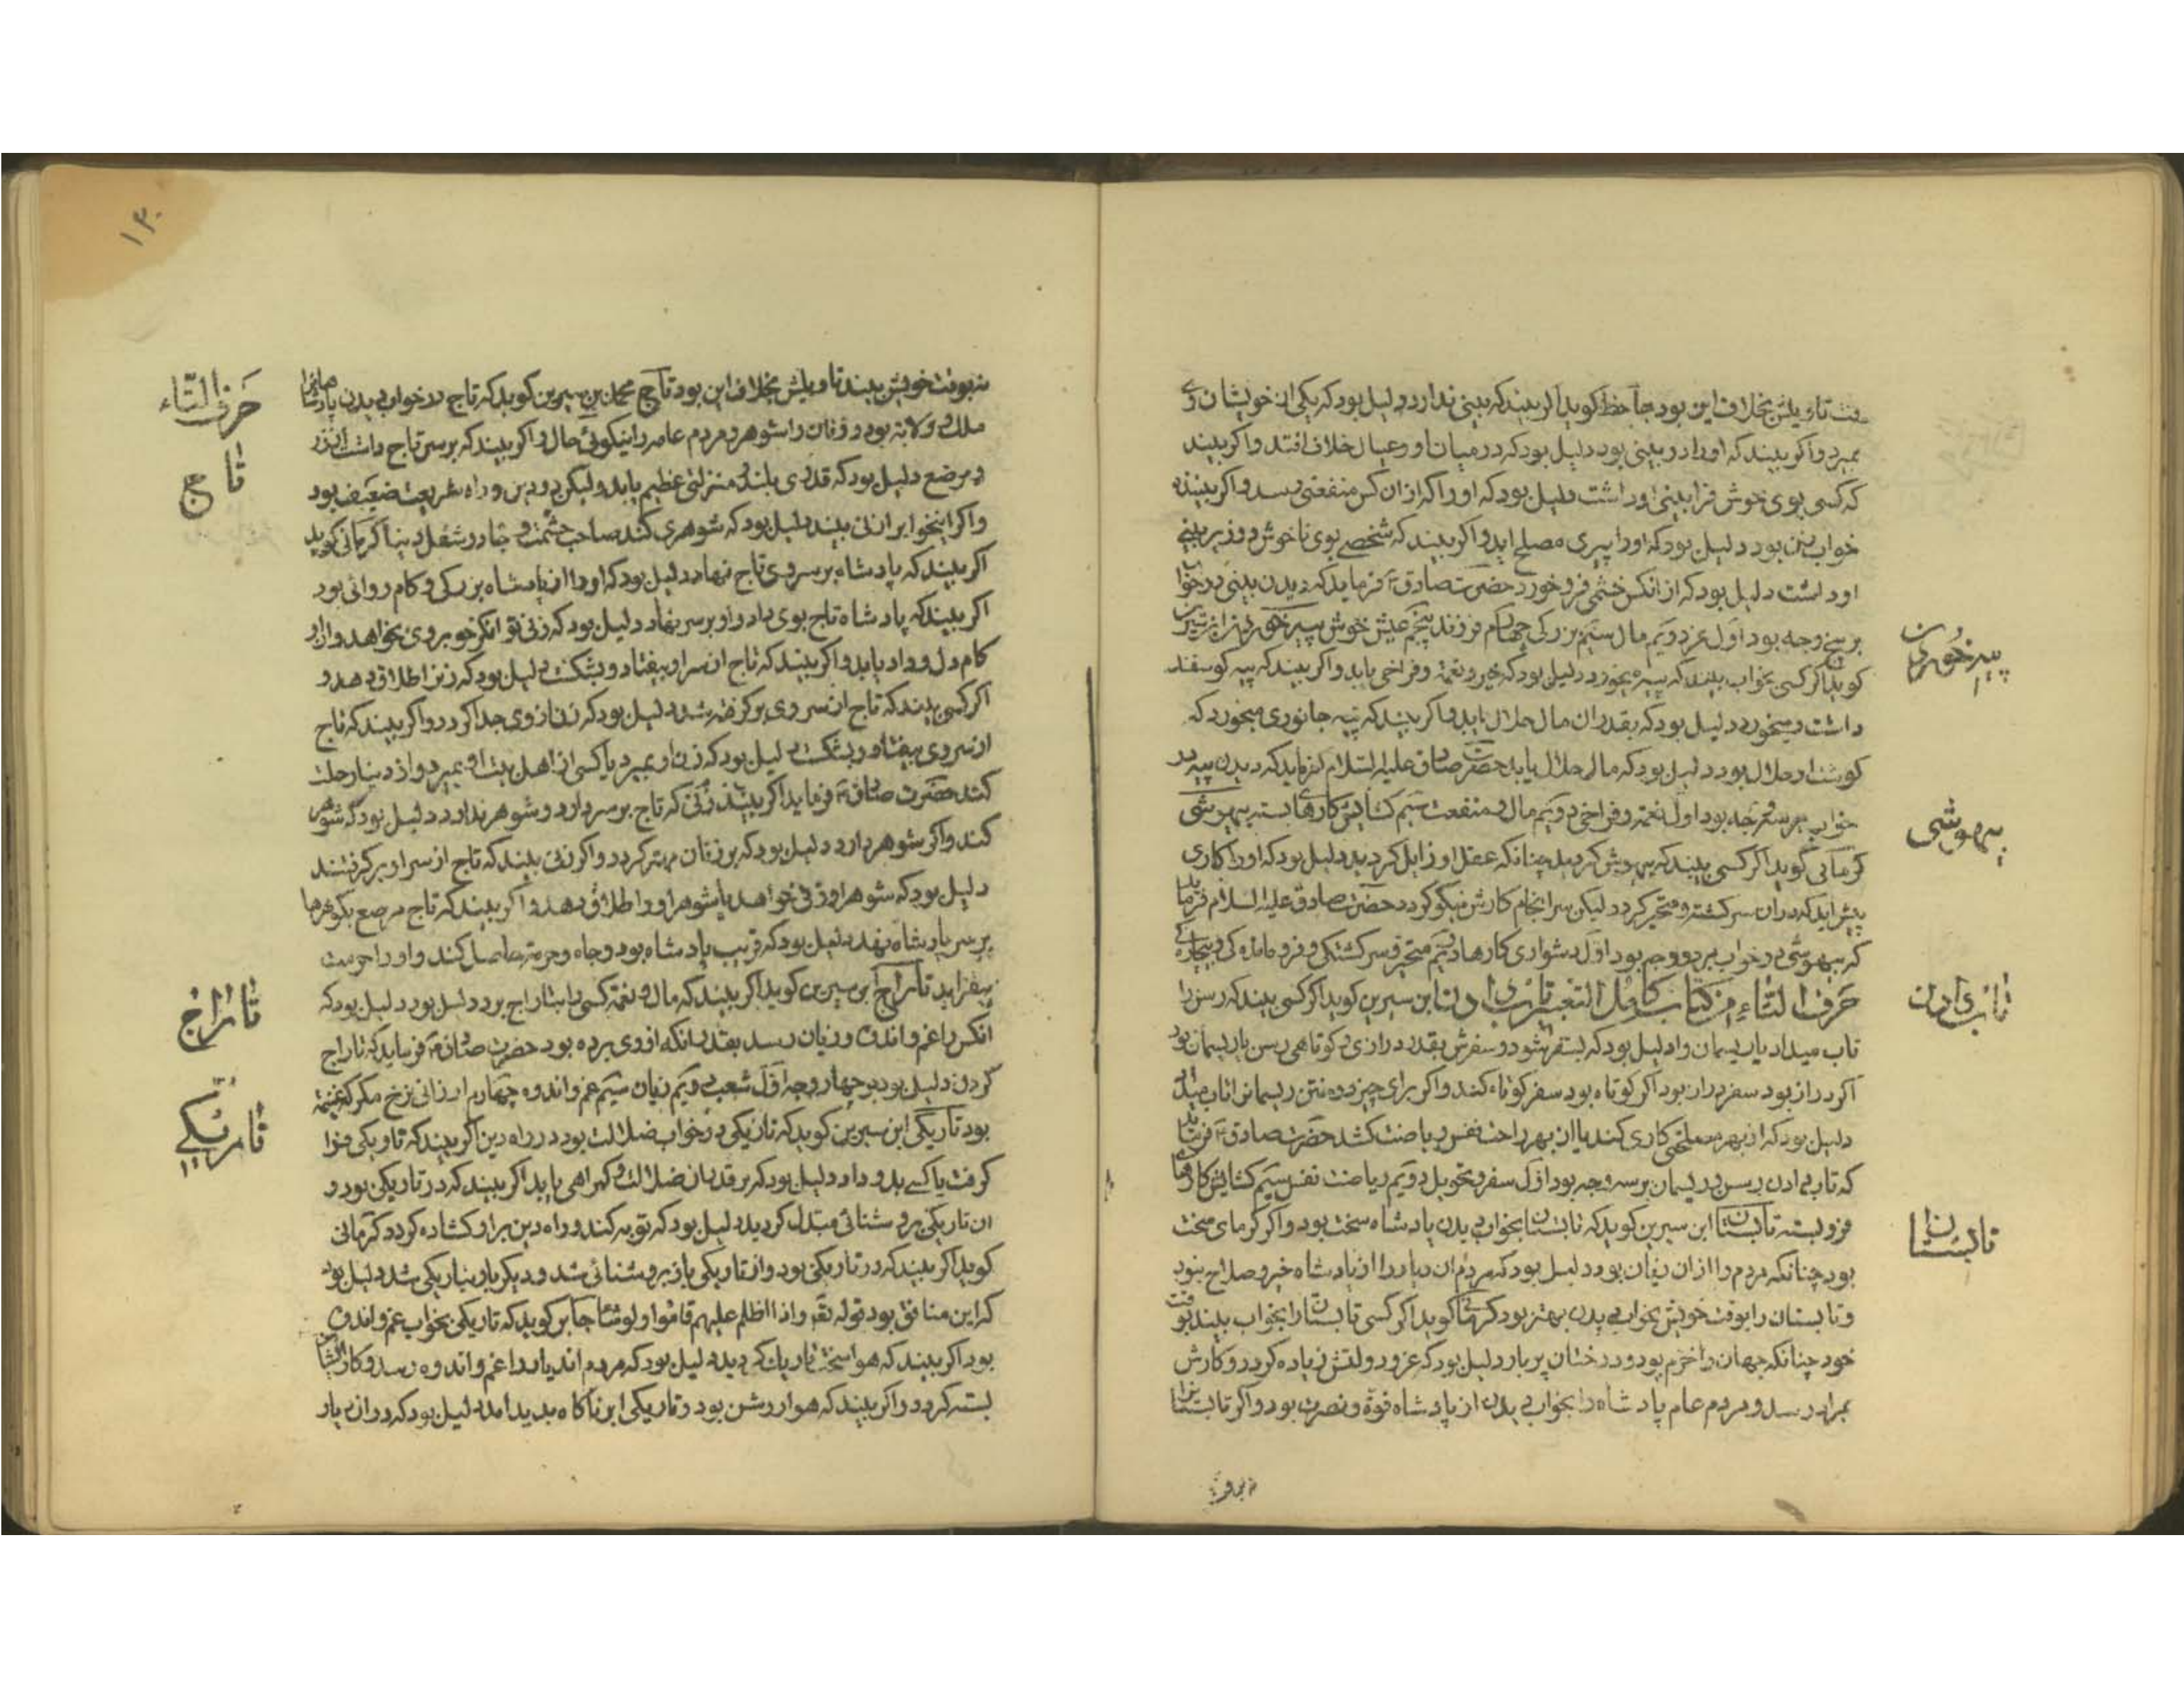 تاویلش بخلاف این بود جاحظ کوید اکر بیند که بینی ندارد دلیل بود که یکی از خویشان وی
بمیرد و اکر بیند که او را دو بینی بود دلیل بود که در میان او و عیال خلاف افتد و اکر بیند
که کسی بوی خوش فرا بینی او داشت دلیل بود که او را که ازان کس منفعتی رسد و اکر بیننده
خواب زن بود دلیل بود که او را پسری مصلح اید و اکر بیند که شخصی بوی ناخوش در زیر بینی
او داشت دلیل بود که از انکس خشمی فرو خورد حضرت صادق ع فرماید که دیدن بینی در خواب
بر پنج وجه بود اول عز دویم مال سیم بزرکی چهارم فرزند پنجم عیش خوش پیه خوردن ابن سیرین
کوید اکر کسی بخواب بیند که پیه میخورد دلیل بود که خیر و نعمة و فراخی یابد و اکر بیند که پیه کوسفند
داشت و میخورد دلیل بود که بقدر ان مال حلال یابد و اکر بیند که پیه جانوری میخورد که
کوشت او حلال بود دلیل بود که مال حلال یابد حضرت صادق علیه السلام فرماید که دیدن پیه در
خواب بر سه وجه بود اول نعمة و فراخی دویم مال و منفعت سیم کشایش کارهای بسته بیهوشی
کرمانی کوید اکر کسی بیند که بیهوش کردید چنانکه عقل او زایل کردید دلیل بود که او را کاری
پیش اید که دران سرکشته و متحیر کردد لیکن سرانجام کارش نیکو کردد حضرت صادق علیه السلام فرماید
که بیهوشی در خواب بر دو وجه بود اول دشواری کارها دویم متحیر و سرکشتکی و فرو مانده کی و بیچاره کی
حرف التاء من کتاب کامل التعبیر تاب دادن ابن سیرین کوید اکر کسی بیند که رسن را
تاب میداد یا ریسمان را دلیل بود که بسفر شود و سفرش بقدر درازی و کوتاهی رسن یا ریسمان بود
اکر دراز بود سفر دراز بود اکر کوتاه بود سفر کوتاه کند و اکر برای چیز دوختن ریسمانرا تاب میداد
دلیل بود که از بهر مصلحتی کاری کند یا از بهر راحت نفس ریاضت کشد حضرت صادق ع فرماید
که تاب دادن رسن و ریسمان بر سه وجه بود اول سفر و تحویل دویم ریاضت نفس سیم کشایش کارهای
فرو بسته تابستان ابن سیرین کوید که تابستان بخواب دیدن پادشاه سخت بود و اکر کرمای سخت
بود چنانکه مردم را ازان زیان بود دلیل بود که مردم ان دیار را از پادشاه خیر و صلاح نبود
و تابستان را بوقت خویش بخواب دیدن بهتر بود کرمانی کوید اکر کسی تابستان را بخواب بیند بوقت
خود چنانکه جهان را خرم بود و درختان پر بار دلیل بود که عز و دولتش زیاده کردد و کارش
بمراد رسد و مردم عام پادشاه را بخواب دیدن از پادشاه قوة و نصرت بود و اکر تابستانرا
پیه خوردن
بیهوشی
تاب دادن
تابستان
۱۳۰
نه بوقت خویش بیند تاویلش بخلاف این بود تاج محمد بن سیرین کوید که تاج در خواب دیدن پادشاهانرا
ملک و ولایة بود و زنان را شوهر و مردم عامه را نیکوئی حال و اکر بیند که بر سر تاج داشت از زر
و مرصع دلیل بود که قدری بلند و منزلتی عظیم یابد ولیکن در دین و راه شریعت ضعیف بود
و اکر اینخواب را زنی بیند دلیل بود که شوهری کند صاحب حشمت و جاه در شغل دنیا کرمانی کوید
اکر بیند که پادشاه بر سر وی تاج نهاد دلیل بود که او را از پادشاه بزرکی و کام روائی بود
اکر بیند که پادشاه تاج بوی داد و او بر سر نهاد دلیل بود که زنی توانکر خوبروی بخواهد و از او
کام دل و داد یابد و اکر بیند که تاج از سر او بیفتاد و بشکست دلیل بود که زنرا طلاق دهد و
اکر کسی بیند که تاج از سر وی بر کرفته شد دلیل بود که زن از وی جدا کردد و اکر بیند که تاج
از سر وی بیفتاد و بشکست دلیل بود که زن او بمیرد یا کسی از اهل بیت او بمیرد و از دنیا رحلت
کند حضرت صادق ع فرماید اکر بیند زنی که تاج بر سر دارد و شوهر ندارد دلیل بود که شوهر
کند و اکر شوهر دارد دلیل بود که بر زنان مهتر کردد و اکر زنی بیند که تاج از سر او بر کرفتند
دلیل بود که شوهر او زنی خواهد یا شوهر او را طلاق دهد و اکر بیند که تاج مرصع بکوهرها
بر سر پادشاه نهد دلیل بود که قریب پادشاه بود و جاه و حرمة حاصل کند و او را حرمت
بیفزاید تاراج ابن سیرین کوید اکر بیند که مال و نعمة کسی را بتاراج برد دلیل بود که
انکس را غم و اندوه و زیان رسد بقدر انکه از وی برده بود حضرت صادق ع فرماید که تاراج
کردن دلیل بود بر چهار وجه اول شعب دویم زیان سیم غم و اندوه چهارم ارزانی نرخ مکر که غنیمة
بود تاریکی ابن سیرین کوید که تاریکی در خواب ضلالت بود در راه دین اکر بیند که تاریکی فرا
کرفت یا کسی بدو داد دلیل بود که بر قدر ان ضلالت و کمراهی یابد اکر بیند که در تاریکی بود و
ان تاریکی بروشنائی مبدل کردید دلیل بود که توبه کند و راه دین بر او کشاده کردد کرمانی
کوید اکر بیند که در تاریکی بود و از تاریکی باز بروشنائی شد و دیکر باره بتاریکی شد دلیل بود
که این منافق بود قوله تعه و اذا اظلم علیهم قاموا و لو شاء جابر کوید که تاریکی بخواب غم و اندوه
بود اکر بیند که هوا سخت تاریک کردید دلیل بود که مردم ان دیار را غم و اندوه رسد و کار
بسته کردد و اکر بیند که هوا روشن بود و تاریکی ابر ناکاه پدید امد دلیل بود که دران دیار
حرف التاء
تاج
تاراج
تاریکی